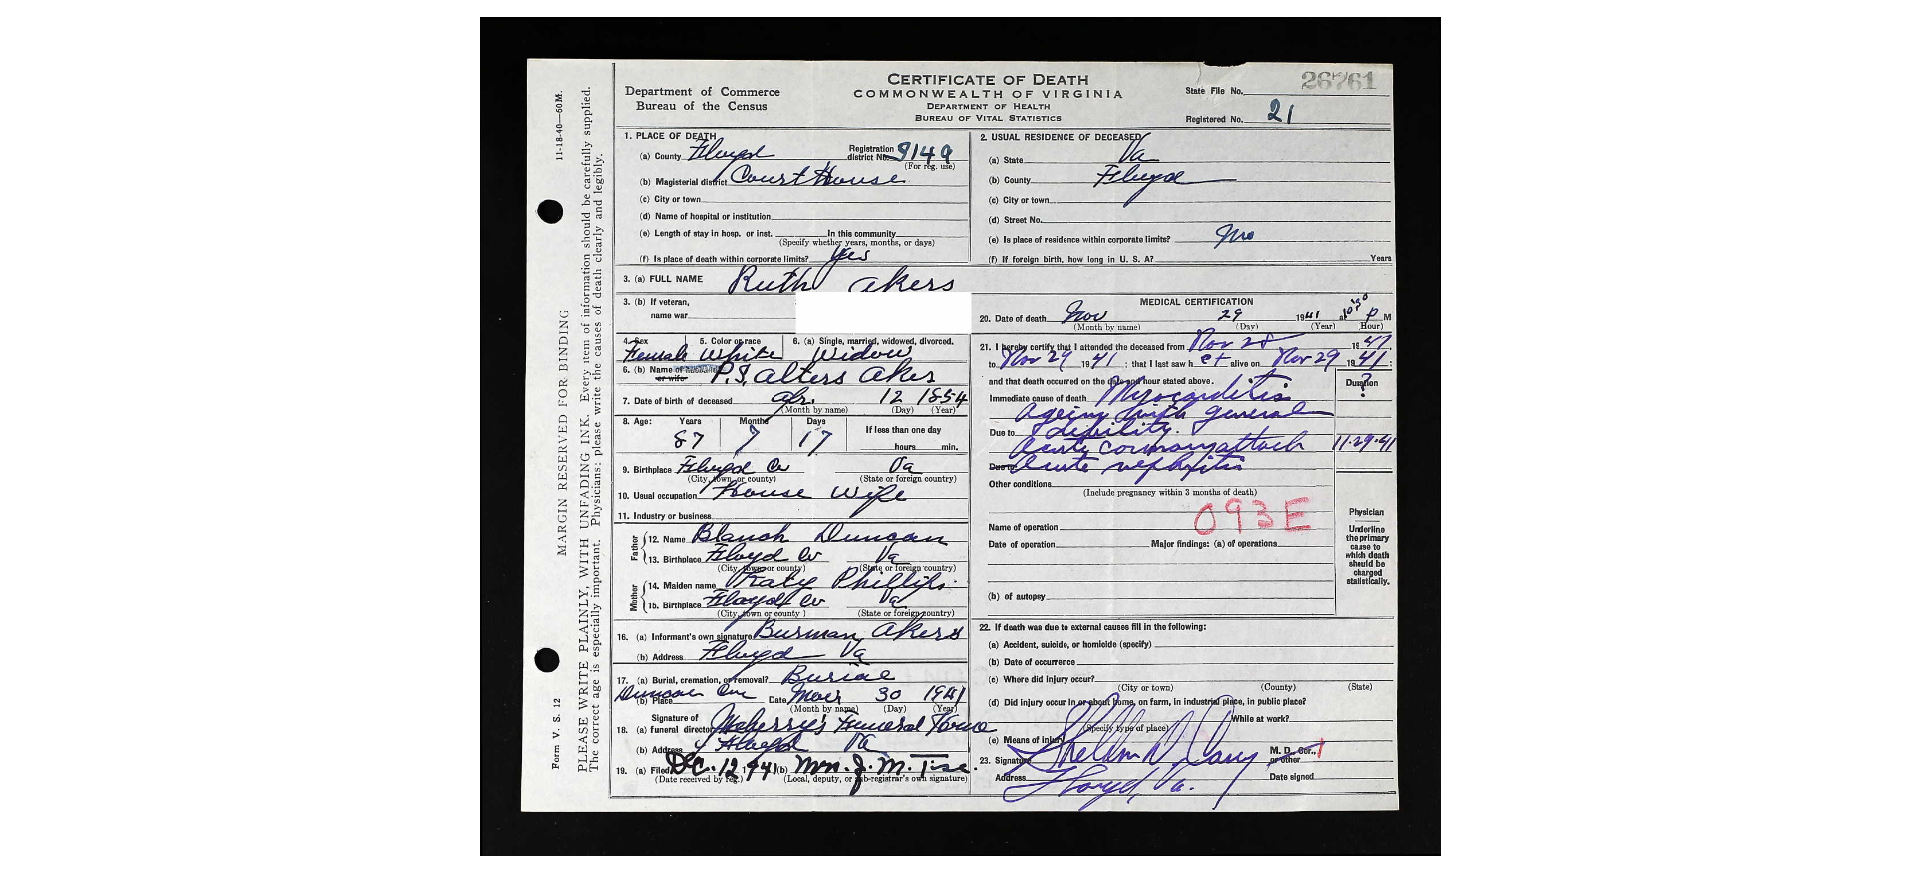 CERTIFICATE OF DEATH
COMMONWEALTH OF VIRGINIA
DEPARTMENT OF HEALTH
BUREAU OF VITAL STATISTICS
Department of Commerce
Bureau of the Census
State File No. 26761
Registered No. 21
11-18-40—50M.
MARGIN RESERVED FOR BINDING
PLEASE WRITE PLAINLY, WITH UNFADING INK. Every item of information should be carefully supplied.
The correct age is especially important. Physicians: please write the causes of death clearly and legibly.
Form V. S. 12
1. PLACE OF DEATH
(a) County Floyd Registration district No. 3149
(For reg. use)
(b) Magisterial district Court House
(c) City or town
(d) Name of hospital or institution
(e) Length of stay in hosp. or inst. In this community
(Specify whether years, months, or days)
(f) Is place of death within corporate limits? Yes
2. USUAL RESIDENCE OF DECEASED
(a) State Va
(b) County Floyd
(c) City or town
(d) Street No.
(e) Is place of residence within corporate limits? No
(f) If foreign birth, how long in U. S. A? Years
3. (a) FULL NAME Ruth Akers
3. (b) If veteran,
name war
4. Sex 5. Color or race 6. (a) Single, married, widowed, divorced.
Female White Widow
6. (b) Name of husband
or wife
Akers
7. Date of birth of deceased 12 1854
(Month by name) (Day) (Year)
8. Age: Years Months Days If less than one day
87 7 17 hours min.
9. Birthplace Floyd Co Va
(City, town or county) (State or foreign country)
10. Usual occupation House Wife
11. Industry or business
Father
12. Name Duncan
13. Birthplace Floyd Co Va
(City, town or county) (State or foreign country)
Mother
14. Maiden name Katy Phillips
15. Birthplace Floyd Co Va
(City, town or county) (State or foreign country)
16. (a) Informant's own signature Burman Akers
(b) Address Floyd Va
17. (a) Burial, cremation, or removal? Burial
(b) Place Duncan Date 30 1941
(Month by name) (Day) (Year)
Signature of
18. (a) funeral director Funeral Home
(b) Address Floyd Va
19. (a) Filed Dec. 12 1941 (b) Mrs. J. M.
(Date received by reg.) (Local, deputy, or sub-registrar's own signature)
MEDICAL CERTIFICATION
20. Date of death Nov 29 1941 P M
(Month by name) (Day) (Year) (Hour)
21. I hereby certify that I attended the deceased from Nov 28 19
to Nov 29 1941; that I last saw her alive on Nov 29 1941;
and that death occurred on the date and hour stated above. Duration
Immediate cause of death Myocarditis ?
Ageing with general
Due to debility.
Acute coronary attack 11-29-41
Due to Acute nephritis
Other conditions
(Include pregnancy within 3 months of death)
093E
Name of operation
Date of operation Major findings: (a) of operations
(b) of autopsy
Physician
Underline
the primary
cause to
which death
should be
charged
statistically.
22. If death was due to external causes fill in the following:
(a) Accident, suicide, or homicide (specify)
(b) Date of occurrence
(c) Where did injury occur?
(City or town) (County) (State)
(d) Did injury occur in or about home, on farm, in industrial place, in public place?
While at work?
(Specify type of place)
(e) Means of injury
23. Signature M. D., Cor., or other
Address Floyd, Va. Date signed